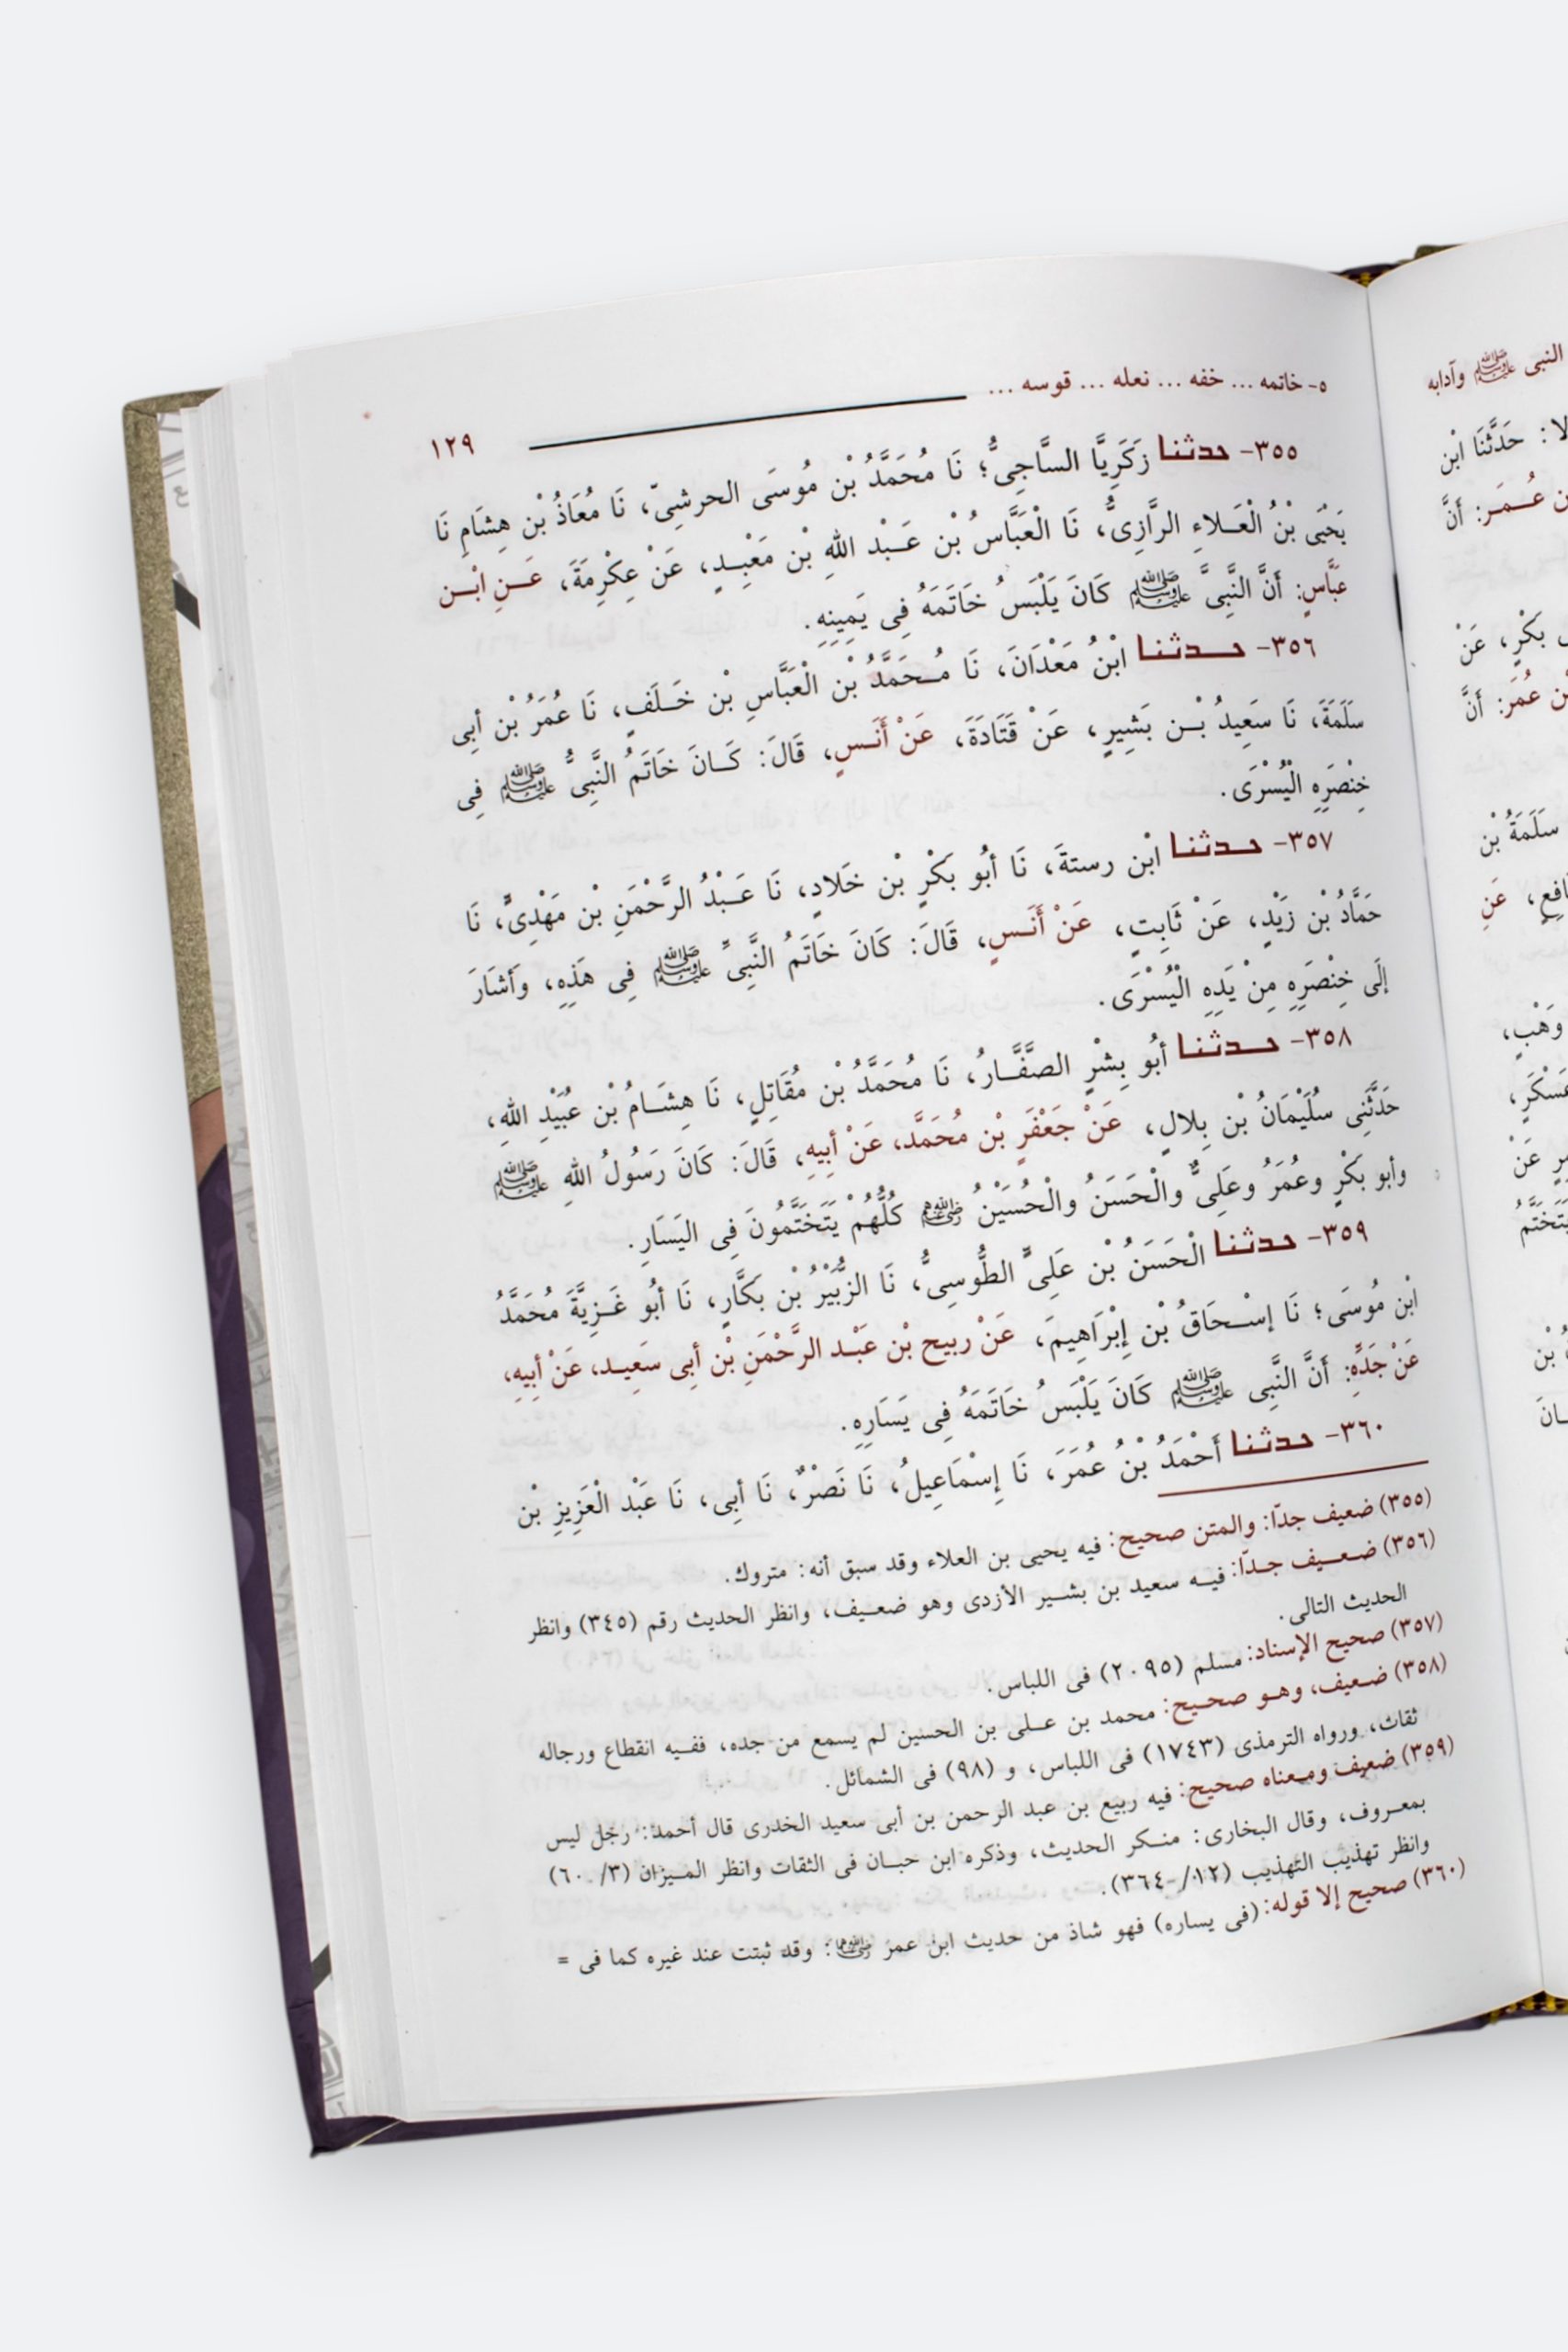 ٥- خاتمه ... خفه ... نعله ... قوسه ...
١٢٩
٣٥٥- حدثنا زَكَرِيَّا السَّاجِىُّ؛ نَا مُحَمَّدُ بْن مُوسَى الحرشِىّ، نَا مُعَاذُ بْن هِشَامِ نَا
يَحْيَى بْنُ الْعَـلاءِ الرَّازِىُّ، نَا الْعَبَّاسُ بْن عَـبْد اللهِ بْن مَعْبِـدٍ، عَنْ عِكْرِمَةَ، عَـنِ ابْـن
عَبَّاسٍ: أَنَّ النَّبِىَّ ﷺ كَانَ يَلْبَسُ خَاتَمَهُ فِى يَمِينِهِ.
٣٥٦- حـدثنا ابْنُ مَعْدَانَ، نَا مُـحَمَّدُ بْن الْعَبَّاسِ بْن خَـلَفٍ، نَا عُمَرُ بْن أبِى
سَلَمَةَ، نَا سَعِيدُ بْـن بَشِيرٍ، عَنْ قَتَادَةَ، عَنْ أَنَـسٍ، قَالَ: كَـانَ خَاتَمُ النَّبِىُّ ﷺ فِى
خِنْصَرِهِ الْيُسْرَى.
٣٥٧- حـدثنا ابْن رستةَ، نَا أبُو بَكْرٍ بْن خَلادٍ، نَا عَـبْدُ الرَّحْمَنِ بْن مَهْدِىٍّ، نَا
حَمَّادُ بْن زَيْدٍ، عَنْ ثَابِتٍ، عَنْ أَنَـسٍ، قَالَ: كَانَ خَاتَمُ النَّبِىِّ ﷺ فِى هَذِهِ، وَأشَارَ
إلَى خِنْصَرِهِ مِنْ يَدَهِ الْيُسْرَى.
٣٥٨- حـدثنا أبُو بِشْرٍ الصَّفَّـارُ، نَا مُحَمَّدُ بْن مُقَاتِلٍ، نَا هِشَـامُ بْن عُبَيْدِ اللهِ،
حَدَّثَنِى سُلَيْمَانُ بْن بِلالٍ، عَنْ جَعْفَرٍ بْن مُحَمَّد، عَنْ أبِيهِ، قَالَ: كَانَ رَسُولُ اللهِ ﷺ
وأبو بَكْرٍ وعُمَرُ وعَلِىٌّ والْحَسَنُ والْحُسَيْنُ ﷺ كُلُّهُمْ يَتَخَتَّمُونَ فِى اليَسَارِ.
٣٥٩- حدثنا الْحَسَنُ بْن عَلِىٍّ الطُّوسِىُّ، نَا الزُّبَيْرُ بْن بَكَّارٍ، نَا أبُو غَـزِيَّةَ مُحَمَّدُ
ابْن مُوسَى؛ نَا إسْـحَاقُ بْن إبْرَاهِيمَ، عَنْ ربيح بْن عَبْـد الرَّحْمَنِ بْن أبِى سَعِيـد، عَنْ أبِيهِ،
عَنْ جَدِّهِ: أَنَّ النَّبِى ﷺ كَانَ يَلْبَسُ خَاتَمَهُ فِى يَسَارِهِ.
٣٦٠- حدثنا أَحْمَدُ بْنُ عُمَرَ، نَا إسْمَاعِيلُ، نَا نَصْرٌ، نَا أبِى، نَا عَبْد الْعَزِيزِ بْن
(٣٥٥) ضعيف جدّا: والمتن صحيح: فيه يحيى بن العلاء وقد سبق أنه: متروك.
(٣٥٦) ضـعـيف جـدّا: فيـه سعيد بن بشـير الأزدى وهو ضعـيف، وانظر الحديث رقم (٣٤٥) وانظر
الحديث التالى.
(٣٥٧) صحيح الإسناد: مسلم (٢٠٩٥) فى اللباس.
(٣٥٨) ضـعيف، وهـو صحـيح: محمد بن عـلى بن الحسين لم يسمع من جده، ففـيه انقطاع ورجاله
ثقات، ورواه الترمذى (١٧٤٣) فى اللباس، و (٩٨) فى الشمائل.
(٣٥٩) ضعيف ومـعناه صحيح: فيه ربيع بن عبد الرحمن بن أبى سعيد الخدرى قال أحمد: رجل ليس
بمعـروف، وقال البخارى: منـكر الحديث، وذكره ابن حبـان فى الثقات وانظر المـيزان (٣/ ٦٠)
وانظر تهذيب التهذيب (١٢/ ٣٦٤).
(٣٦٠) صحيح إلا قوله: (فى يساره) فهو شاذ من حديث ابن عمر ﷺ: وقد ثبتت عند غيره كما فى =
النبى ﷺ وآدابه
حَدَّثَنَا ابْن
عُـمَـر: أَنَّ
بَكْرٍ، عَنْ
عُمَر: أَنَّ
سَلَمَةُ بْن
عَنِ
وَهْبٍ،
عَنْ
يَتَخَتَّمُ
بْن